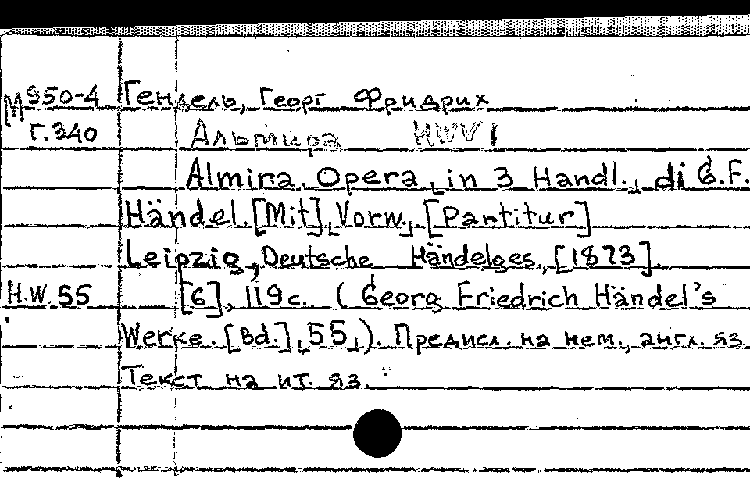 М 950-4 Гендель, Георг Фридрих
Г.340 Альмира HWV 1
Almira. Opera in 3 Handl., di G.F.
Händel. [Mit] Vorw. [Partitur]
Leipzig, Deutsche Händelges., [1873].
H.W. 55 [6], 119 с. (Georg Friedrich Händel's
Werke. [Bd.] 55.). Предисл. на нем., англ. яз.
Текст на ит. яз.